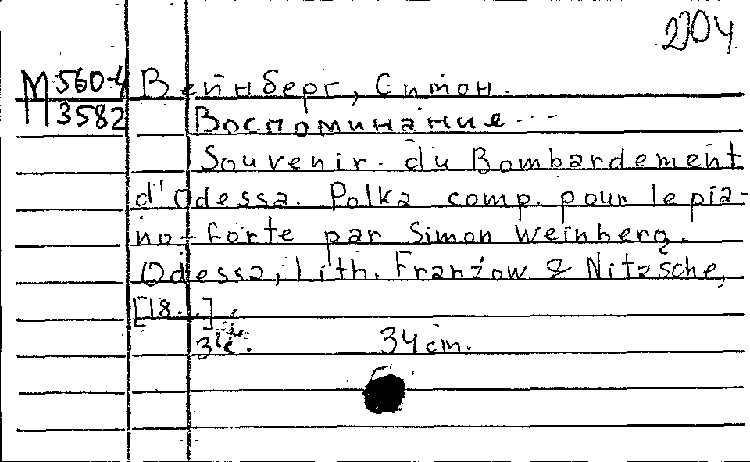 2204
М 560-4 Вейнберг, Симон.
3582 Воспоминание...
Souvenir du Bombardement
d'Odessa. Polka comp. pour le pia-
no-forte par Simon Weinberg.
Odessa, Lith. Franzow & Nitzsche,
[18..].
34 cm.